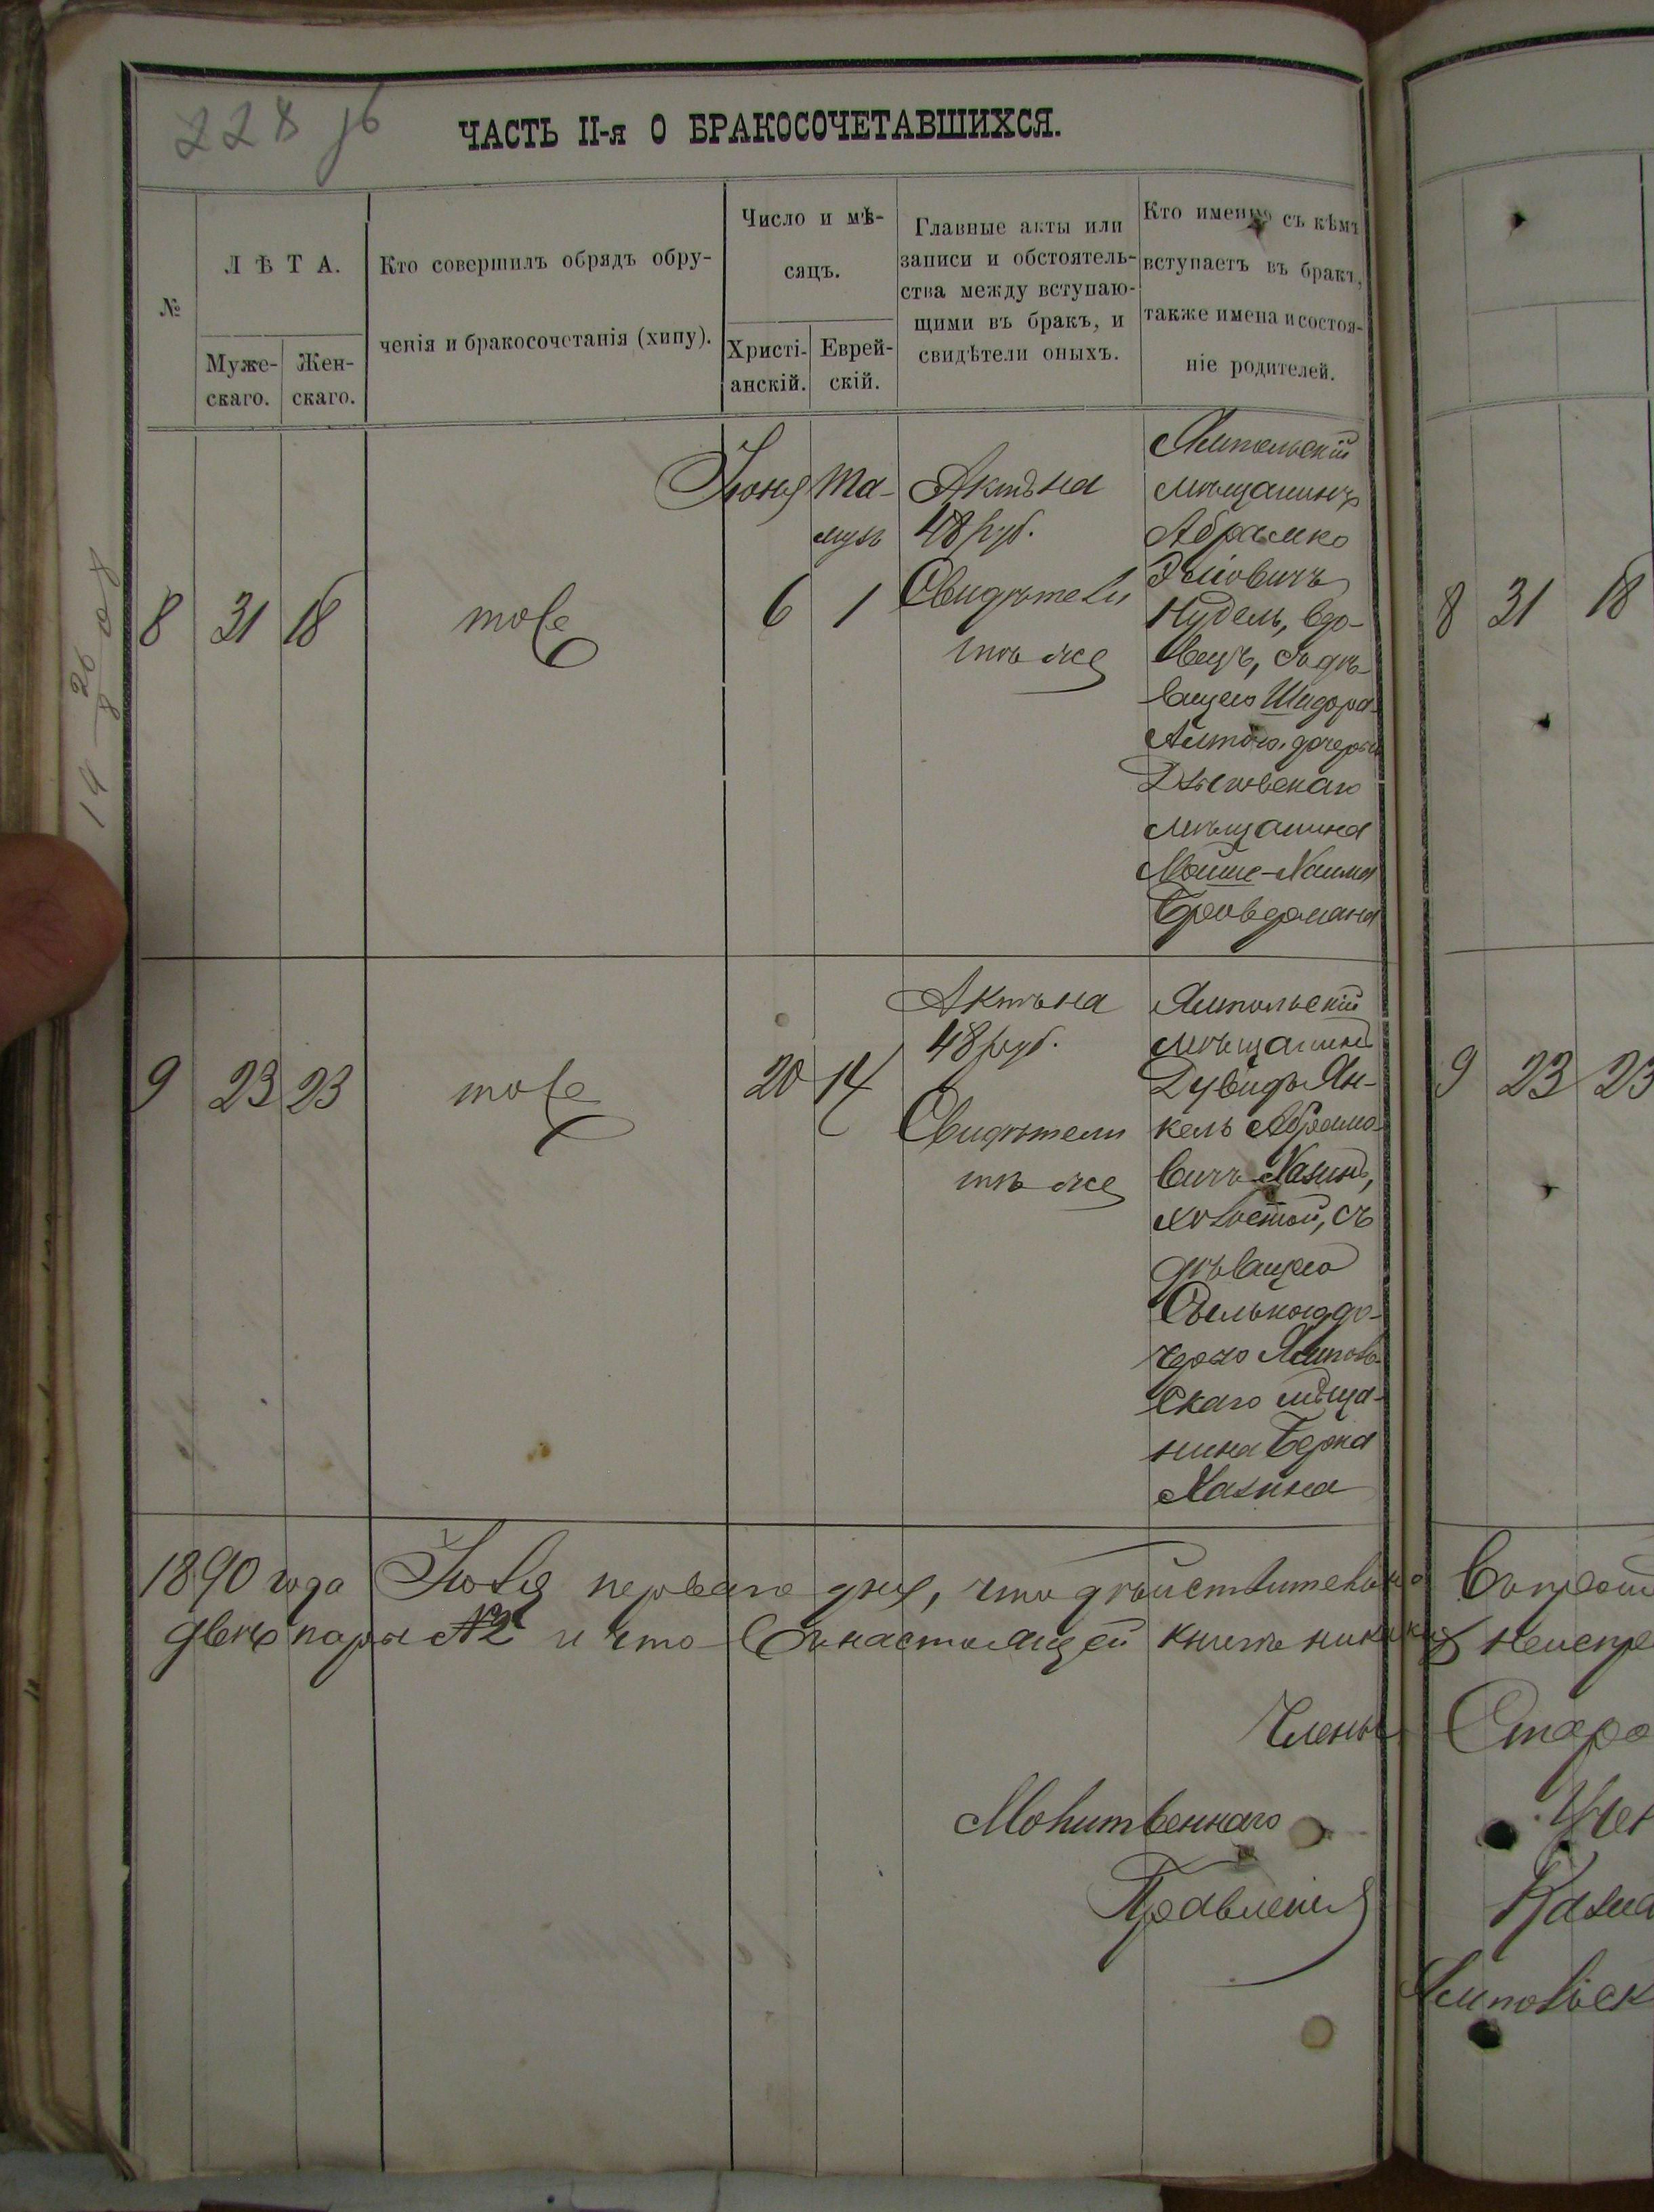 228 об
ЧАСТЬ II-я О БРАКОСОЧЕТАВШИХСЯ.
№
ЛѢТА.
Муже-
скаго.
Жен-
скаго.
Кто совершилъ обрядъ обру-
ченія и бракосочетанія (хипу).
Число и мѣ-
сяцъ.
Христі-
анскій.
Еврей-
скій.
Главные акты или
записи и обстоятель-
ства между вступаю-
щими въ бракъ, и
свидѣтели оныхъ.
Кто именно съ кѣмъ
вступаетъ въ бракъ,
также имена и состоя-
ніе родителей.
8
31
18
тоже
Іюня
6
Та-
музъ
1
Актъ на
48 руб.
Свидѣтели
тѣ же
Ямпольскій
мѣщанинъ
Абрамко
Нудель, вдо-
вецъ, съ дѣ-
вицею
дочерью
мѣщанина
Мойше-Хаима
9
23
23
тоже
20
14
Актъ на
48 руб.
Свидѣтели
тѣ же
Ямпольскій
мѣщанинъ
Дувидъ Ян-
кель Абрамо-
вичъ Хазинъ,
холостой, съ
дѣвицею
до-
черью Ямполь-
скаго мѣща-
нина Берка
Хазина
1890 года Іюля перваго дня, что дѣйствительно
двѣ пары №2 и что въ настоящей книгѣ никакихъ
Члены
Молитвеннаго
Правленія
8 31 18
9 23 23